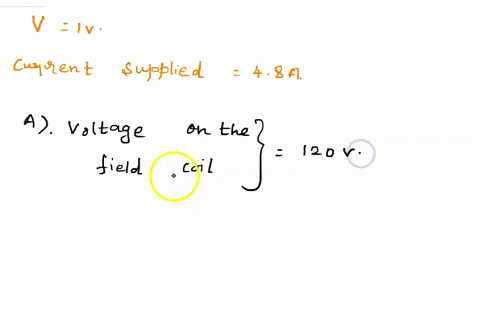 V = 1v.
Current supplied = 4.8A.
A). Voltage on the
field coil } = 120 v.